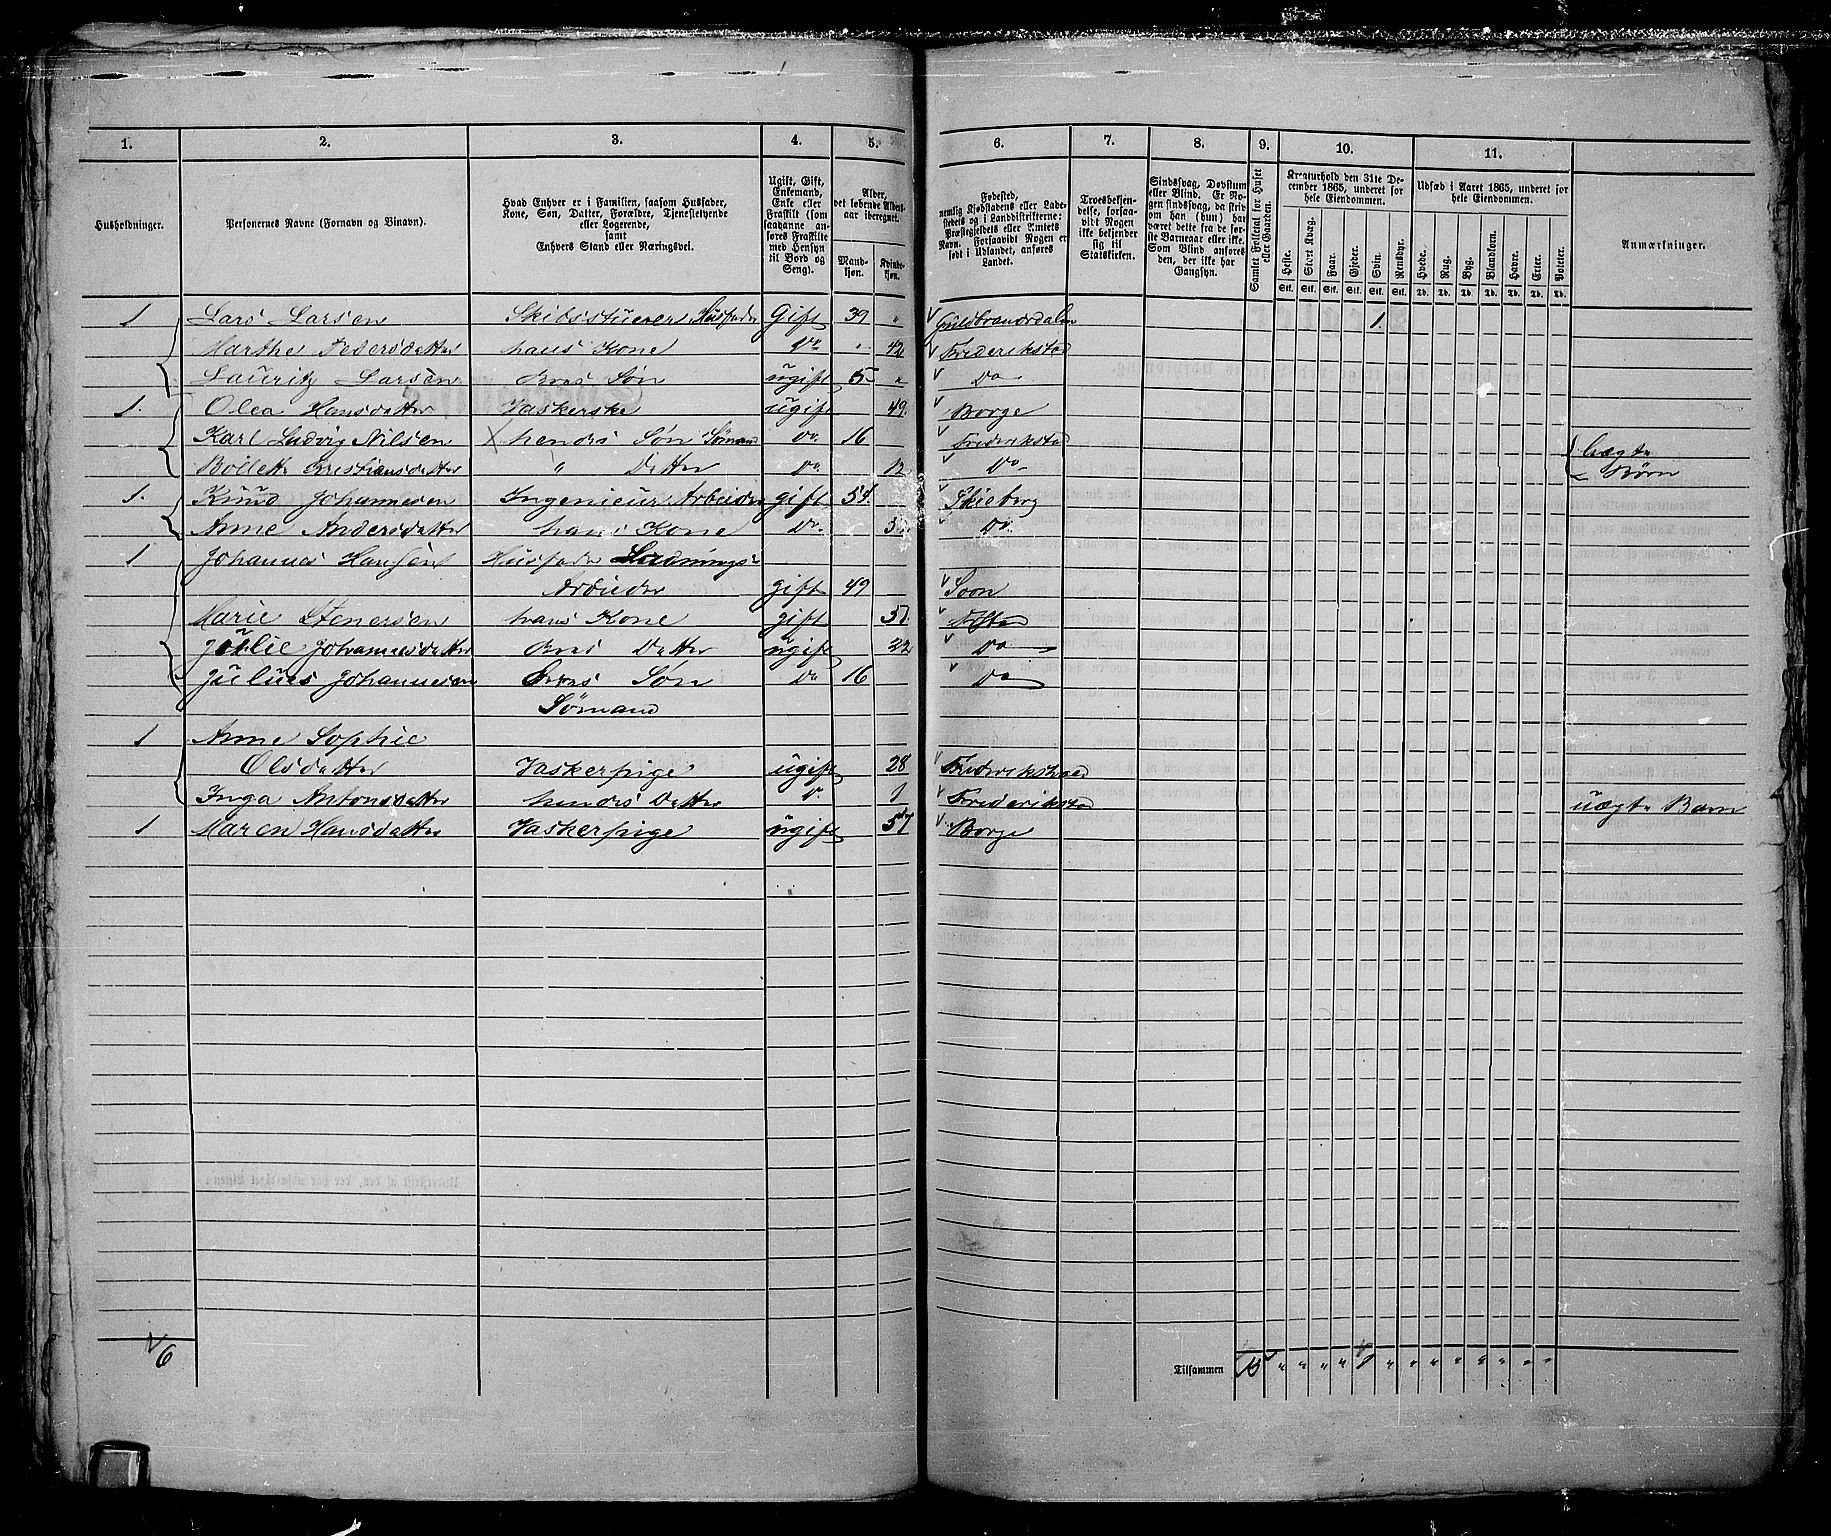 1. 2. 3. 4. 5. 6. 7. 8. 9. 10. 11.
Husholdninger.
Personernes Navne (Fornavn og Binavn).
Hvad Enhver er i Familien, saasom Husfader, Kone, Søn, Datter, Forældre, Tjenestetyende eller Logerende, samt Enhvers Stand eller Næringsvei.
Ugift, Gift, Enkemand, Enke eller Fraskilt (som saadanne anføres Fraskilte med Hensyn til Bord og Seng).
Alder, det løbende Aldersaar iberegnet.
Mandkjøn. Kvindekjøn.
Fødested, nemlig Kjøbstadens eller Ladestedets og i Landdistrikterne: Præstegjeldets eller Amtets Navn. Forsaavidt Nogen er født i Udlandet, anføres Landet.
Troesbekjendelse, forsaavidt Nogen ikke bekjender sig til Statskirken.
Sindssvag, Døvstum eller Blind. Er Nogen sindssvag, da skrives om han (hun) har været dette fra de første Barneaar eller ikke. Som Blind anføres den, der ikke har Gangsyn.
Samlet Folketal for Huset eller Gaarden.
Kreaturhold den 31te December 1865, underet for hele Eiendommen.
Heste. Stort Kvæg. Faar. Gjeder. Svin. Rensdyr.
Stk. Stk. Stk. Stk. Stk. Stk.
Udsæd i Aaret 1865, underet for hele Eiendommen.
Hvede. Rug. Byg. Blandkorn. Havre. Erter. Poteter.
Td. Td. Td. Td. Td. Td. Td.
Anmærkninger.
1 Lars Larsen Husfader Gift 39 " Guldbrandsdalen 1.
Marthe Pedersdatter hans Kone Do " 42 Frederikstad
Lauritz Larsen Søn ugift 5 " Do
1. Olea Hansdatter Vaskerske ugift 49. Borge
Karl Ludvig Nilsen hendes Søn Sømand Do 16 Frederikstad
" Datter Do 12 Do uægte Børn
1. Knud Johannesen Arbeider gift 54. Skieberg
Anne Andersdatter hans Kone Do Do
1 Johannes Hansen Husfader Ludnings=
Arbeider gift 49 Soon
Marie Stenersen hans Kone gift Fstad
Julie Johannesdatter Datter ugift 22 Do
Julius Johannesen Søn Do 16 Do
Sømand
1 Anne Sophie
Olsdatter Vaskerpige ugift 28 Frederikshald
Inga Antonsdatter hendes Datter Do 1 Frederikstad uægte Barn
1 Maren Hansdatter Vaskerpige ugift 57 Borge
6 Tilsammen 15 " " " " 1 " " " " " " " "